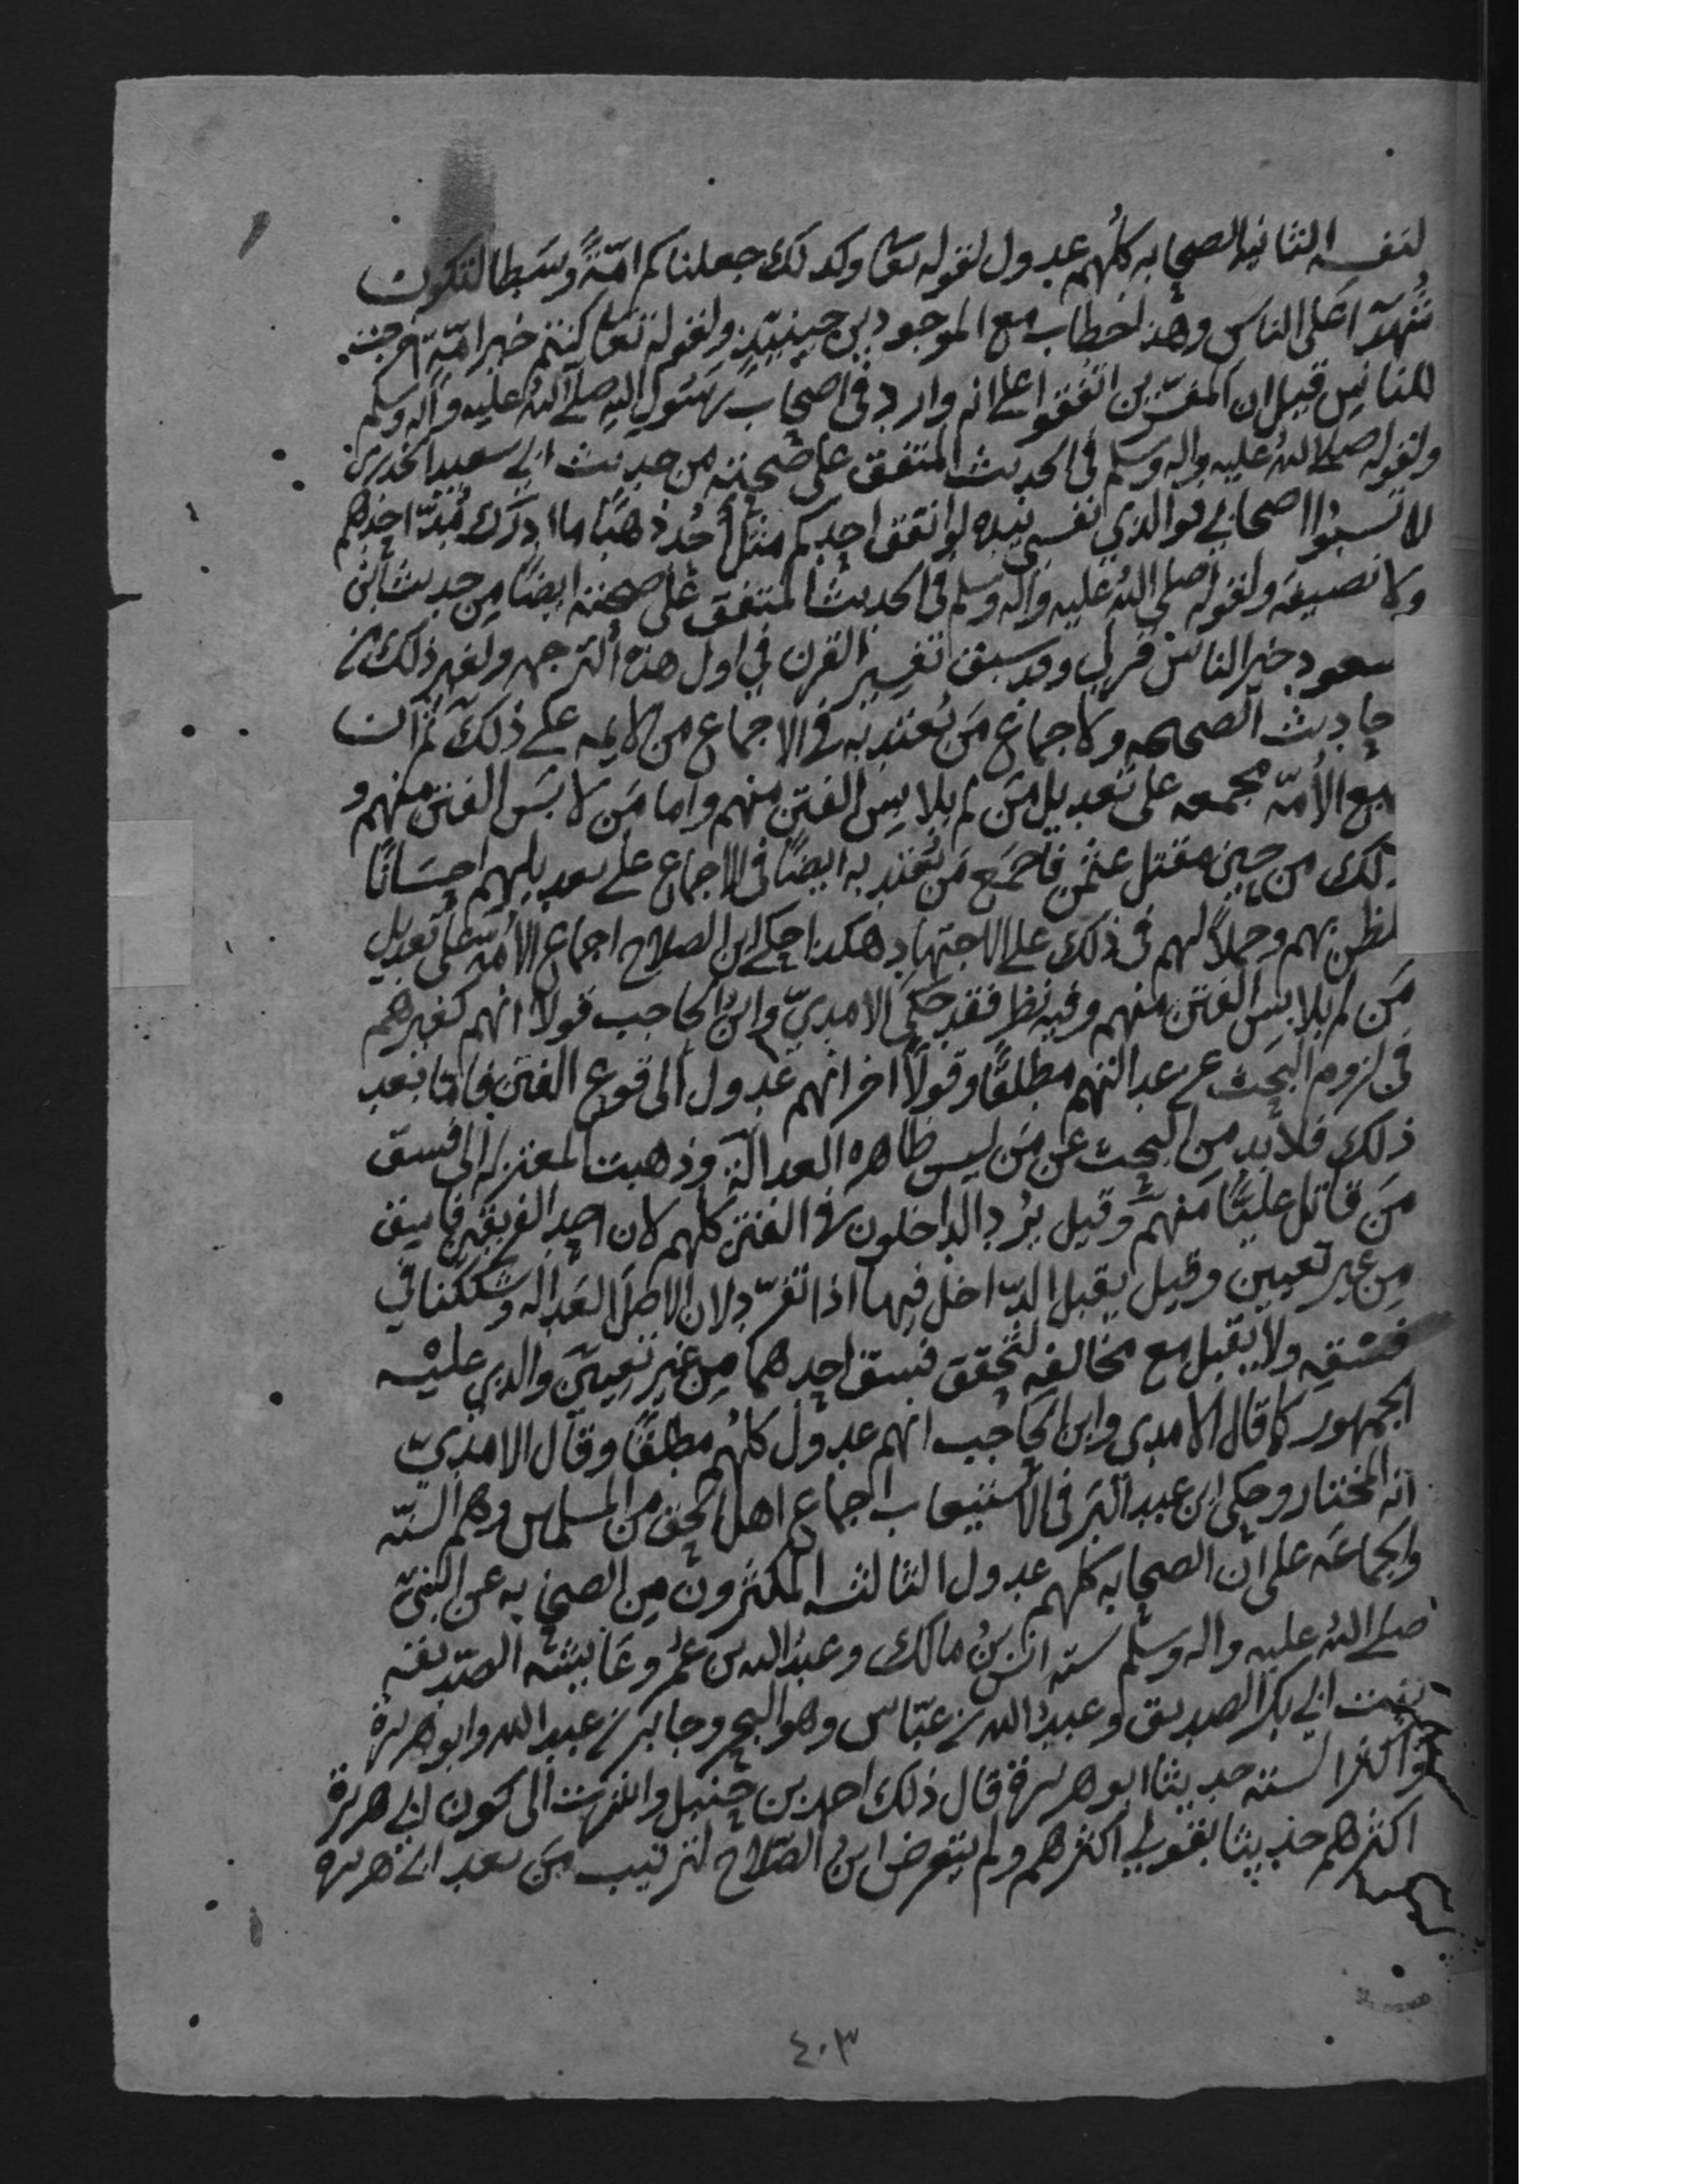 لنفسه الثانية الصحابه كلهم عدول لقوله تعا وكذلك جعلناكم امّةً وسَطا لتكونوا
شُهدآ على الناس وهذا خطاب مع الموجودين حينئذٍ ولقوله تعا كنتم خير امّةٍ اخرجت
للناس قيل ان المفسّرين اتفقوا على انه وارد في اصحاب رسول الله صلى الله عليه واله وسلم
ولقوله صلى الله عليه واله وسلم في الحديث المتفق على صحّته من حديث ابي سعيد الخدري
لا تسبّوا اصحابي فوالذي نفسي بيده لو انفق احدكم مثل أُحُد ذهبًا ما ادرك مُدّ احدهم
ولا نصيفه ولقوله صلى الله عليه واله وسلم في الحديث المتفق على صحته ايضًا من حديث ابن
سعود خير الناس قرني وقد سبق تفسير القرن في اول هذه الترجمه ولغير ذلك من
حاديث الصحيحه ولاجماع مَن يُعتد به في الاجماع من الايمه على ذلك ثم ان
يع الأمّه مجمعه على تعديل مَن لم يلابس الفتن منهم واما مَن لابَس الفتن منهم و
لك من حين مقتل عثمن فاجمَع مَن يُعتد به ايضًا في الاجماع على تعديلهم احسَانًا
لظن بهم وحملاً لهم في ذلك على الاجتهاد هكذا حكى ابن الصلاح اجماع الأمه على تعديل
مَن لم يلابس الفتن منهم وفيه نظر فقد حكى الامدي وابن الحاجب قولا انهم كغيرهم
في لزوم البحث عن عدالتهم مطلقًا وقولاً اخر انهم عدول الى وقوع الفتن فاما بعد
ذلك فلا بد من البحث عن مَن ليس ظاهره العدالة وذهبت المعتزله الى فسق
مَن قاتل عليًّا منهم وقيل يُرد الداخلون في الفتن كلهم لان احد الفريقين فاسق
من غير تعيين وقيل يقبل الدّاخل فيها اذا تفرّد لان الاصل العَداله وشككنا في
فسقه ولا يقبل مع مخالفه لتحقق فسق احدهما من غير تعيين والذي عليه
الجمهور كما قال الامدي وابن الحاجب انهم عدول كلهم مطلقًا وقال الامدي
انه المختار وحكى ابن عبد البَر في الاستيعاب اجماع اهل الحق من المسلمين وهم السنّه
والجماعه على ان الصحابه كلهم عدول الثالثه المكثرون من الصحابه عن النبيّ
صلى الله عليه واله وسلم سته انس بن مالك وعبد الله بن عُمر وعَايشه الصّديقه
بنت ابي بكر الصديق وعبد الله بن عبّاس وهو البحر وجابر بن عبد الله وابو هريرة
واكثر الستة حديثًا ابو هريرة قال ذلك احمد بن حنبل وانتهت الى كون ابي هريرة
اكثرهم حديثًا بقولي اكثرهم ولم يتعرض ابنُ الصّلاح لترتيب مَن بعد ابي هريره
٤٠٣